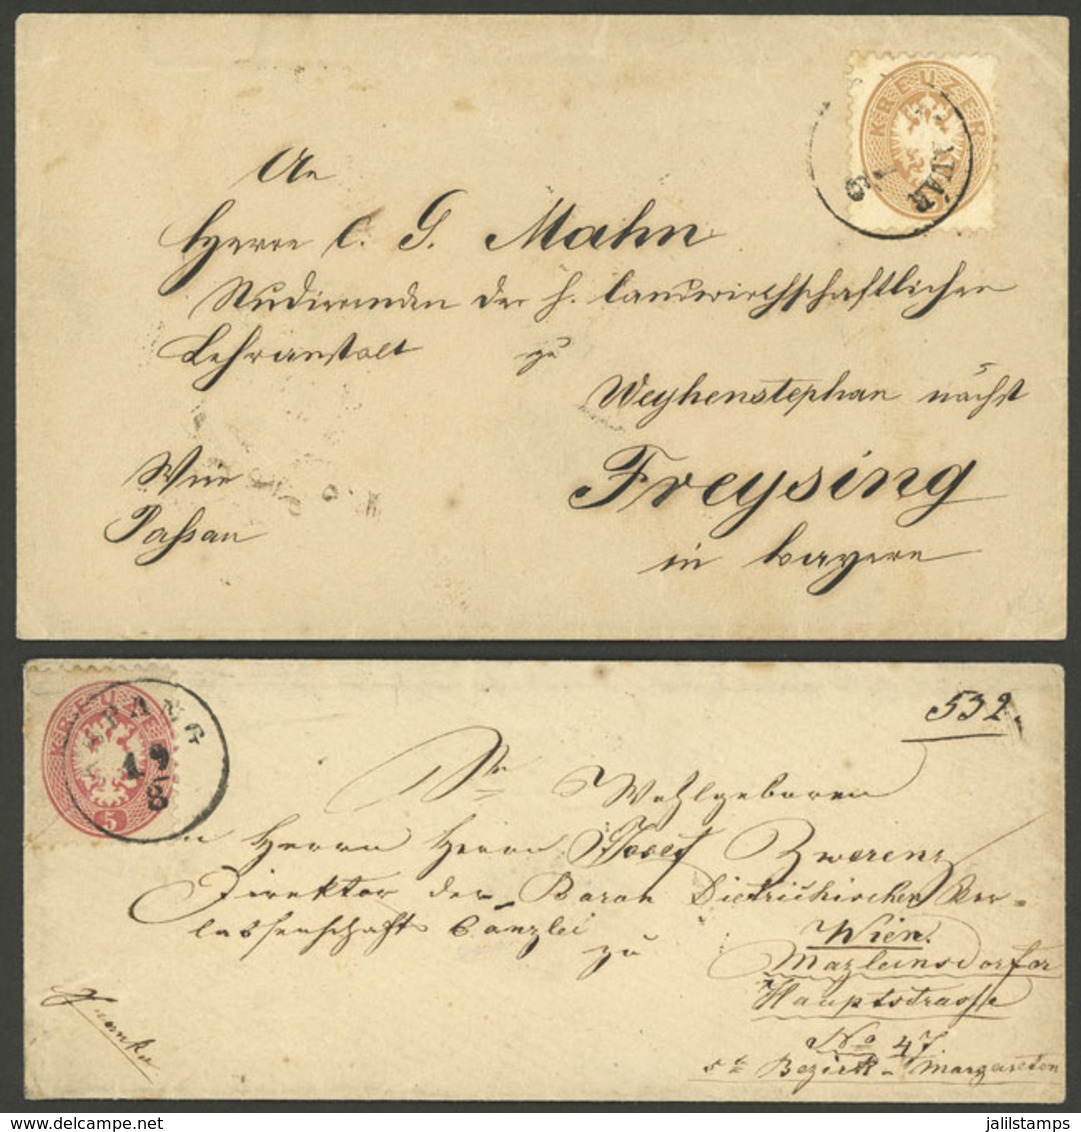 KREUZER
An
Herrn C. G. Mahn
Studirenden der h. landwirthschaftlichen
Lehranstalt zu
Weyhenstephan nächst
Passau
Freysing
in Bayern
KREUZER
5
19
8
532.
Sr Wohlgeboren
Herrn Herrn Josef Zwerenz
Direktor der Baron Dietrichischen Ver=
lassenschafts Canzlei
zu
Wien.
Mazleinsdorfer
Hauptstrasse
No 47
5t Bezirk - Margareten
Franko
delcampe.net
jalilstamps